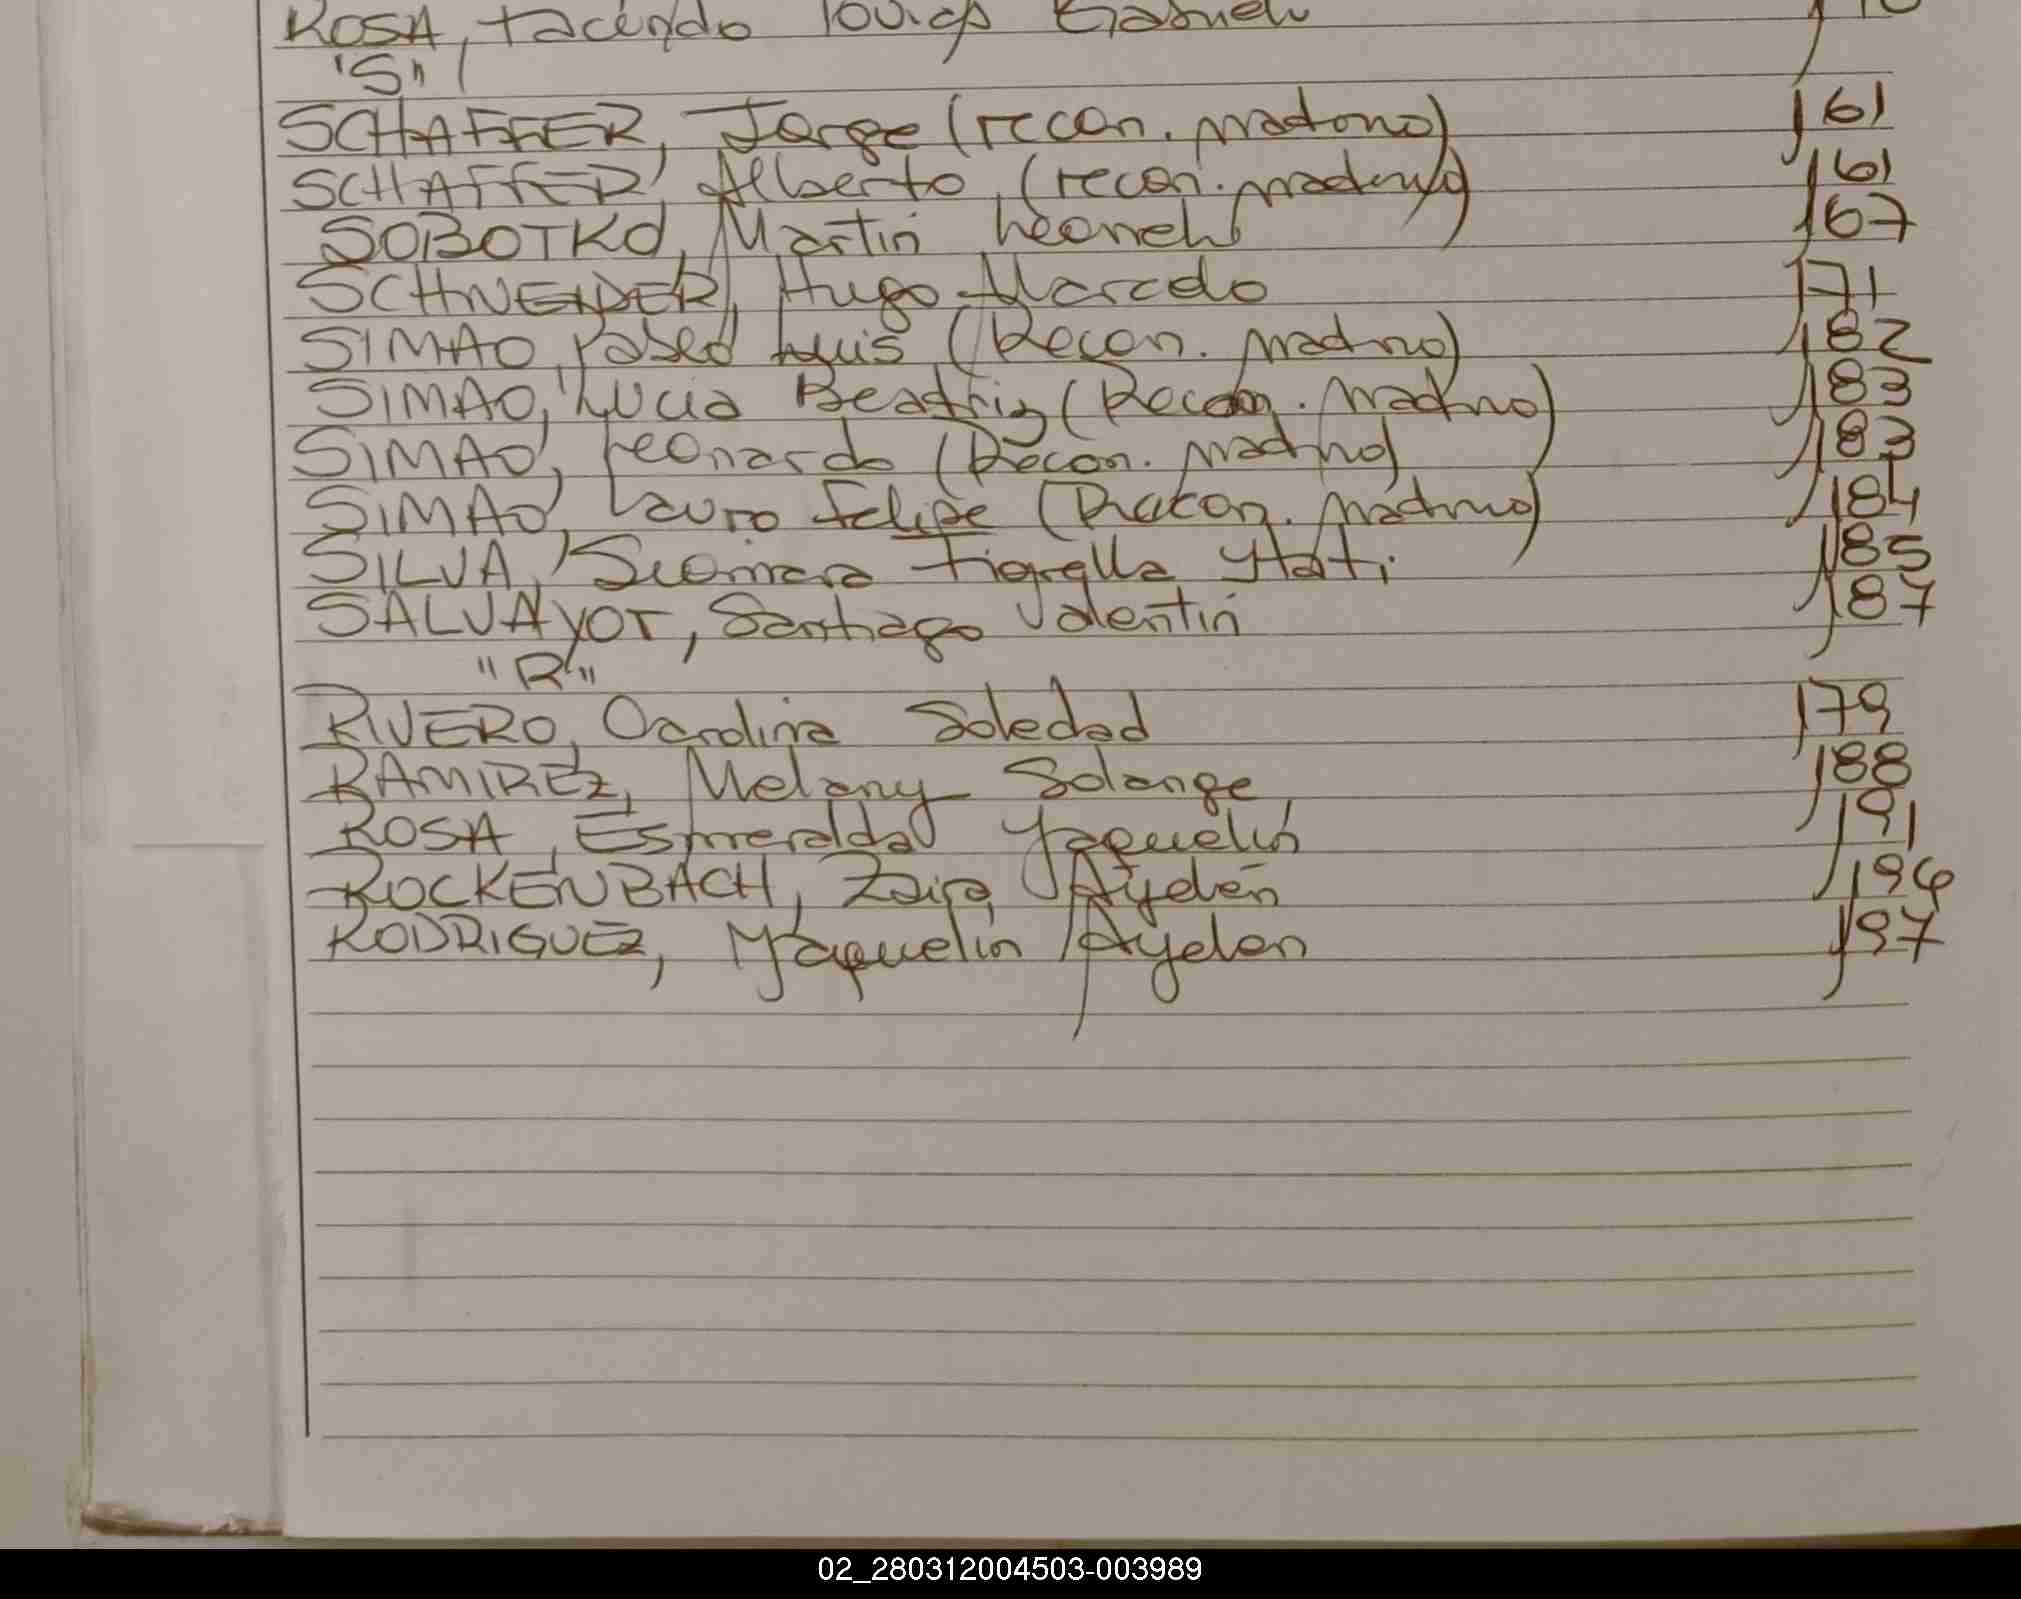 ROSA, Facundo Gabriel
"S"
SCHAFFER, Jorge (recon. materno) 161
SCHAFFER, Alberto (recon. materno) 161
SOBOTKO, Martin Leonel 167
SCHNEIDER, Hugo Marcelo 171
SIMAO, Luis (Recon. materno) 182
SIMAO, Lucia Beatriz (Recon. materno) 183
SIMAO, Leonardo (Recon. materno) 183
SIMAO, Lauro Felipe (Recon. materno) 184
SILVA, Fiorella 185
SALVAYOT, Santiago Valentin 187
"R"
RIVERO, Carolina Soledad 179
RAMIREZ, Melany Solange 188
ROSA, Esmeralda Yaquelin 191
ROCKENBACH, Zaira Aydén 196
RODRIGUEZ, Yaquelin Ayelen 197
02_280312004503-003989